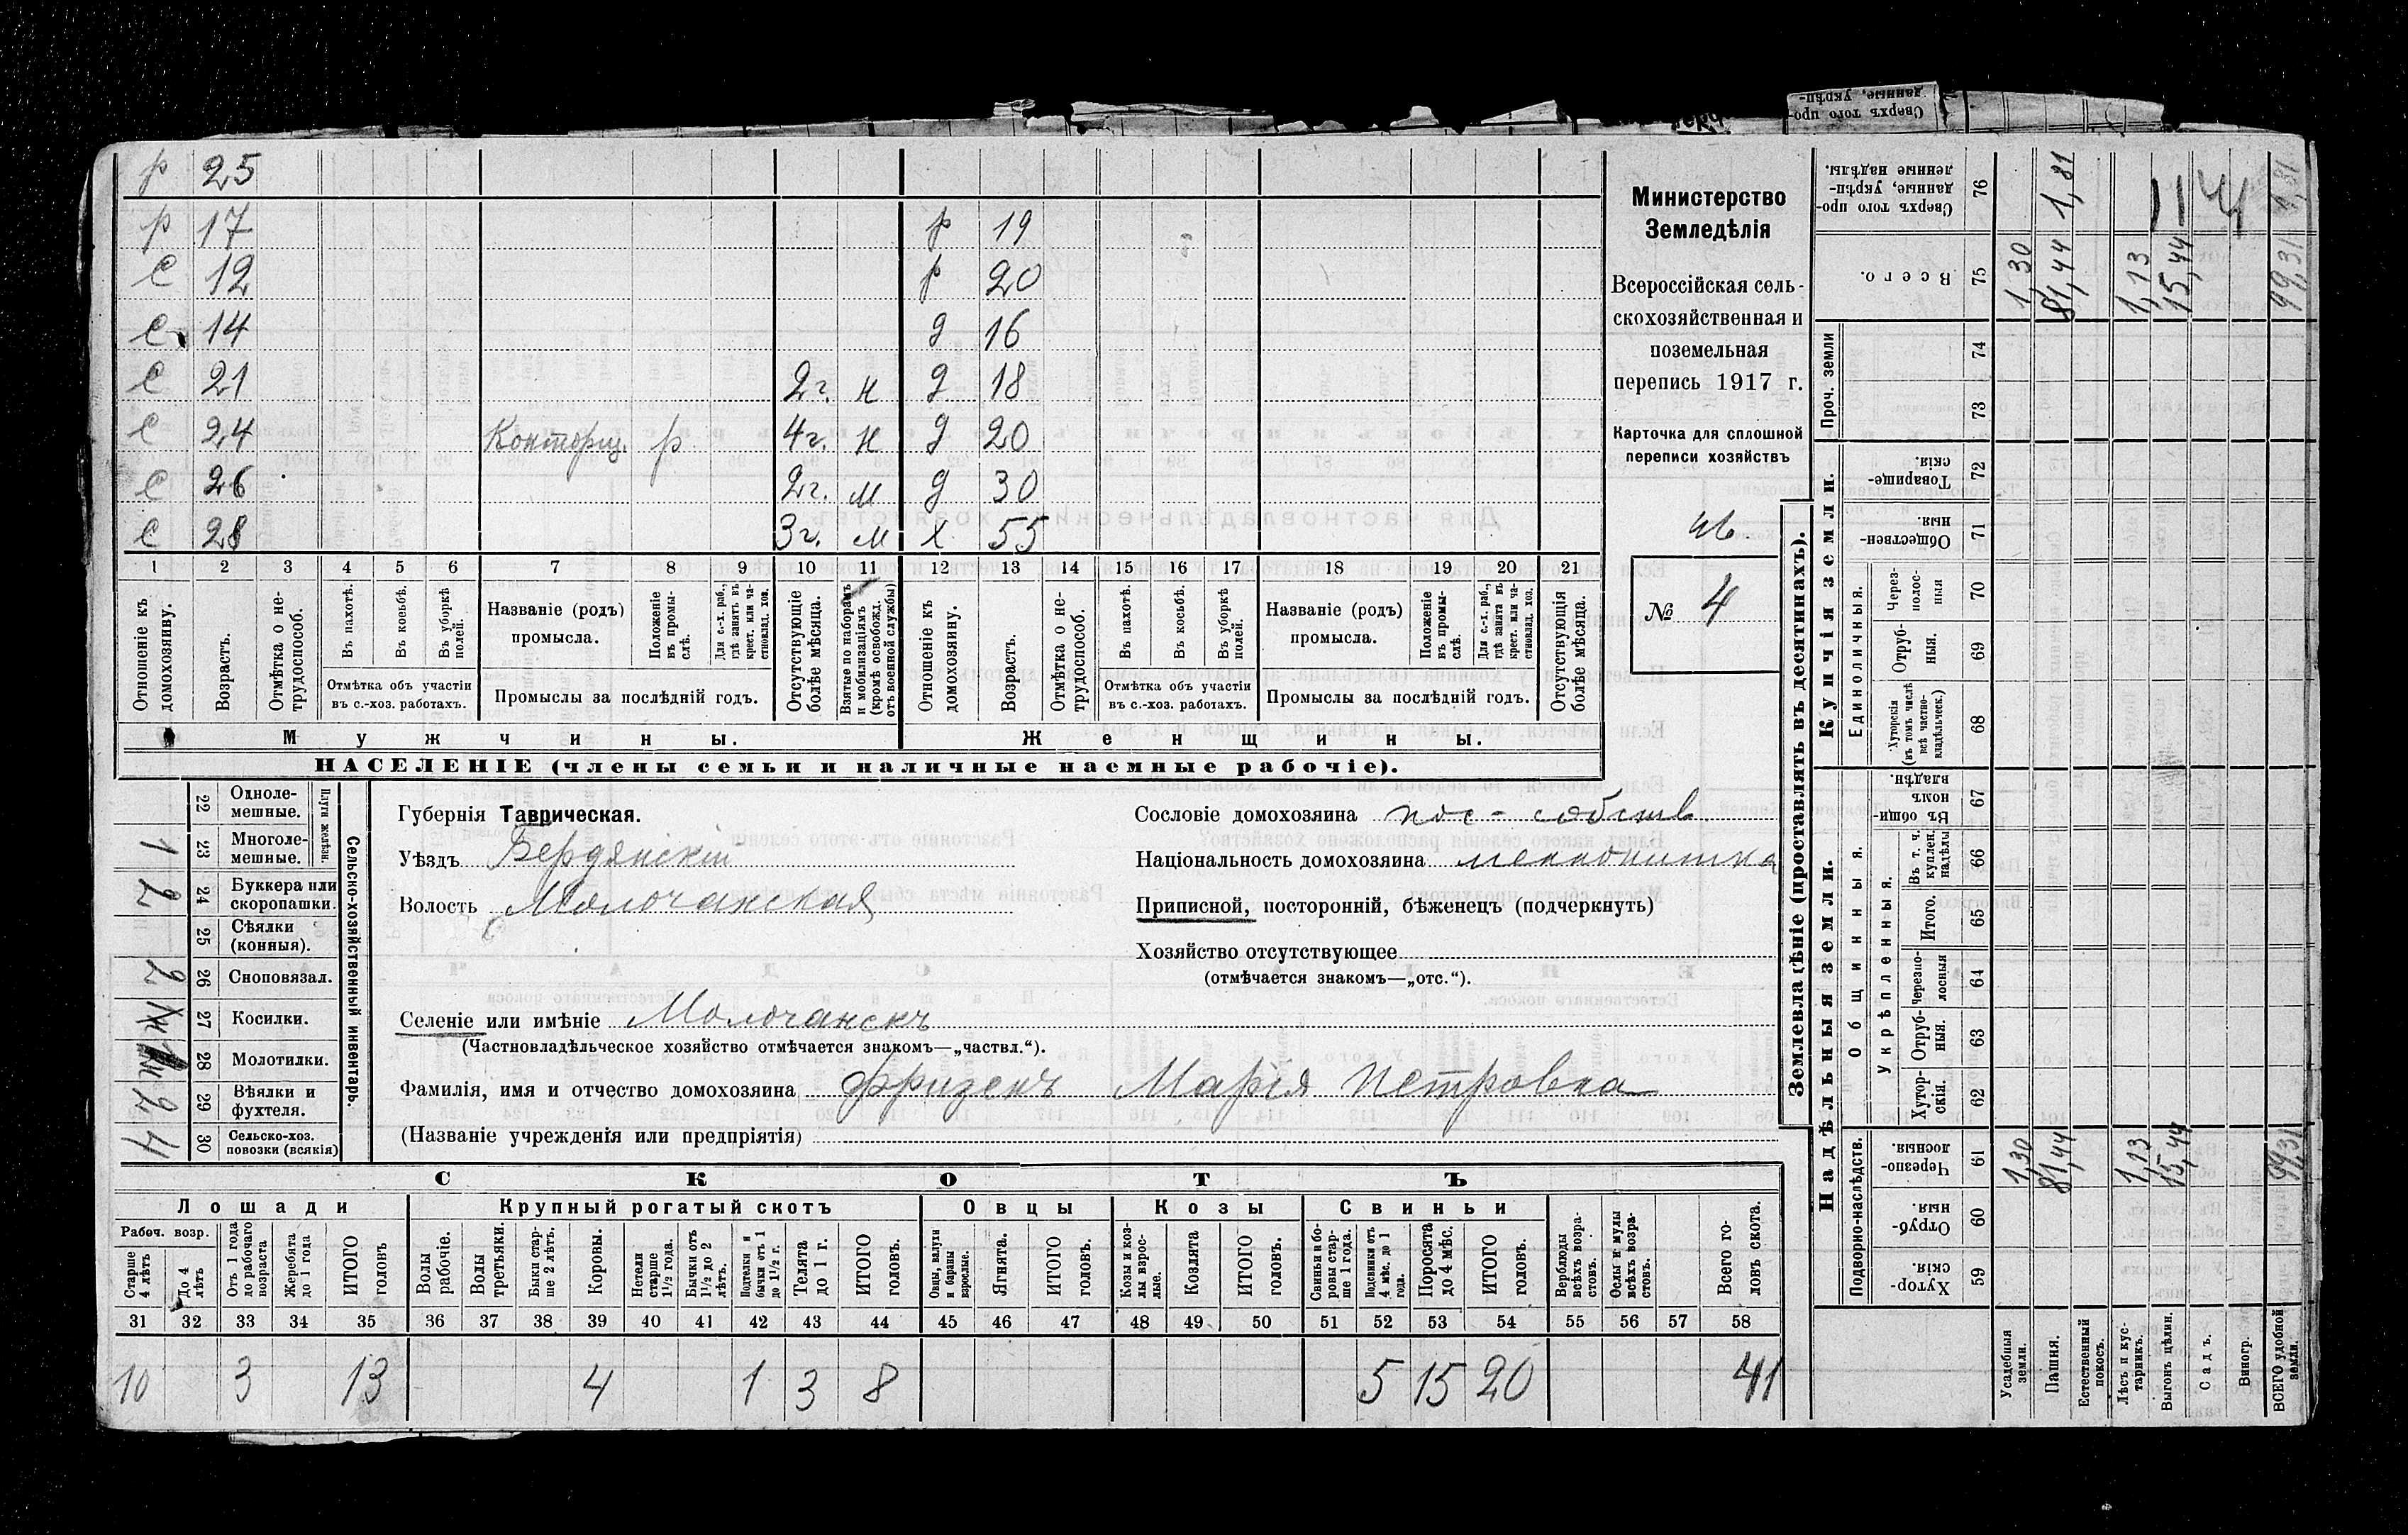 р 25
р 17 р 19
с 12 р 20
с 14 д 16
с 21 2г. н д 18
с 24 Конторщ. р 4г. н д 20
с 26 2г. м д 30
с 28 3г. м х 55
1 2 3 4 5 6 7 8 9 10 11 12 13 14 15 16 17 18 19 20 21
Отношеніе къ домохозяину.
Возрастъ.
Отмѣтка о не-
трудоспособ.
Въ пахотѣ.
Въ косьбѣ.
Въ уборкѣ
полей.
Отмѣтка объ участіи
въ с.-хоз. работахъ.
Названіе (родъ)
промысла.
Положеніе
въ промы-
слѣ.
Для с.-х. раб.,
гдѣ занятъ въ
крест. или ча-
стновлад. хоз.
Промыслы за послѣдній годъ.
Отсутствующіе
болѣе мѣсяца.
Взятые по наборамъ
и мобилизаціямъ
(кромѣ освобожд.
отъ военной службы)
Отношеніе къ
домохозяину.
Возрастъ.
Отмѣтка о не-
трудоспособ.
Въ пахотѣ.
Въ косьбѣ.
Въ уборкѣ
полей.
Отмѣтка объ участіи
въ с.-хоз. работахъ.
Названіе (родъ)
промысла.
Положеніе
въ промы-
слѣ.
Для с.-х. раб.,
гдѣ занята въ
крест. или ча-
стновлад. хоз.
Промыслы за послѣдній годъ.
Отсутствующія
болѣе мѣсяца.
Мужчины.
Женщины.
НАСЕЛЕНІЕ (члены семьи и наличные наемные рабочіе).
Министерство
Земледѣлія
Всероссійская сель-
скохозяйственная и
поземельная
перепись 1917 г.
Карточка для сплошной
переписи хозяйствъ
№ 4
Сельско-хозяйственный инвентарь.
Плуги желѣзн.
22 Одноле-
мешные.
1 23 Многоле-
мешные.
2 24 Буккера или
скоропашки.
25 Сѣялки
(конныя).
2 26 Сноповязал.
27 Косилки.
28 Молотилки.
2 29 Вѣялки и
фухтеля.
4 30 Сельско-хоз.
повозки (всякія)
Губернія Таврическая.
Уѣздъ Бердянскій
Волость Молочанская
Сословіе домохозяина пос-собств
Національность домохозяина меннонитка
Приписной, посторонній, бѣженецъ (подчеркнуть)
Хозяйство отсутствующее
(отмѣчается знакомъ—„отс.“).
Селеніе или имѣніе Молочанскъ
(Частновладѣльческое хозяйство отмѣчается знакомъ—„частвл.“).
Фамилія, имя и отчество домохозяина Фризенъ Марія Петровна
(Названіе учрежденія или предпріятія)
СКОТЪ
Лошади
Крупный рогатый скотъ
Овцы
Козы
Свиньи
Рабоч. возр.
Старше
4 лѣтъ
До 4
лѣтъ
Отъ 1 года
до рабочаго
возраста
Жеребята
до 1 года
ИТОГО
головъ
Волы
рабочіе.
Волы
третьяки.
Быки стар-
ше 2 лѣтъ.
Коровы.
Нетели
старше
1½ года.
Бычки отъ
1½ до 2
лѣтъ.
Подтелки и
бычки отъ 1
до 1½ г.
Телята
до 1 г.
ИТОГО
головъ.
Овцы, валухи
и бараны
взрослые.
Ягнята.
ИТОГО
головъ.
Козы и коз-
лы взрос-
лые.
Козлята
ИТОГО
головъ.
Свиньи и бо-
ровы стар-
ше 1 года.
Подсвинки отъ
4 мѣс. до 1
года.
Поросята
до 4 мѣс.
ИТОГО
головъ.
Верблюды
всѣхъ возра-
стовъ.
Ослы и мулы
всѣхъ возра-
стовъ.
Всего го-
ловъ скота.
31 32 33 34 35 36 37 38 39 40 41 42 43 44 45 46 47 48 49 50 51 52 53 54 55 56 57 58
10 3 13 4 1 3 8 5 15 20 41
Землевладѣніе (проставлять въ десятинахъ).
Надѣльныя земли.
Купчія земли.
Проч. земли
Подворно-наслѣдств.
Общинныя.
Укрѣпленныя.
Единоличныя.
Сверхъ того про-
данные, укрѣп-
ленные надѣлы. 76 1,81
Всего. 75 1,30 81,44 1,13 15,44 99,31
74
73
Товарище-
скія. 72
Обществен-
ныя. 71
Через-
полос-
ныя 70
Отруб-
ныя. 69
Хуторскія
(въ томъ числѣ
всѣ частно-
владѣльческ.) 68
Въ общин-
номъ
владѣн. 67
Въ т. ч.
куплен.
надѣлы 66
Итого. 65
Черезпо-
лосныя 64
Отруб-
ныя. 63
Хутор-
скія. 62
Черезпо-
лосныя. 61 1,30 81,44 1,13 15,44 99,31
Отруб-
ныя. 60
Хутор-
скія. 59
Усадебныя
земли.
Пашня.
Естественный
покосъ.
Лѣсъ и кус-
тарникъ.
Выгонъ цѣлин.
Садъ.
Виногр.
ВСЕГО удобной
земли.